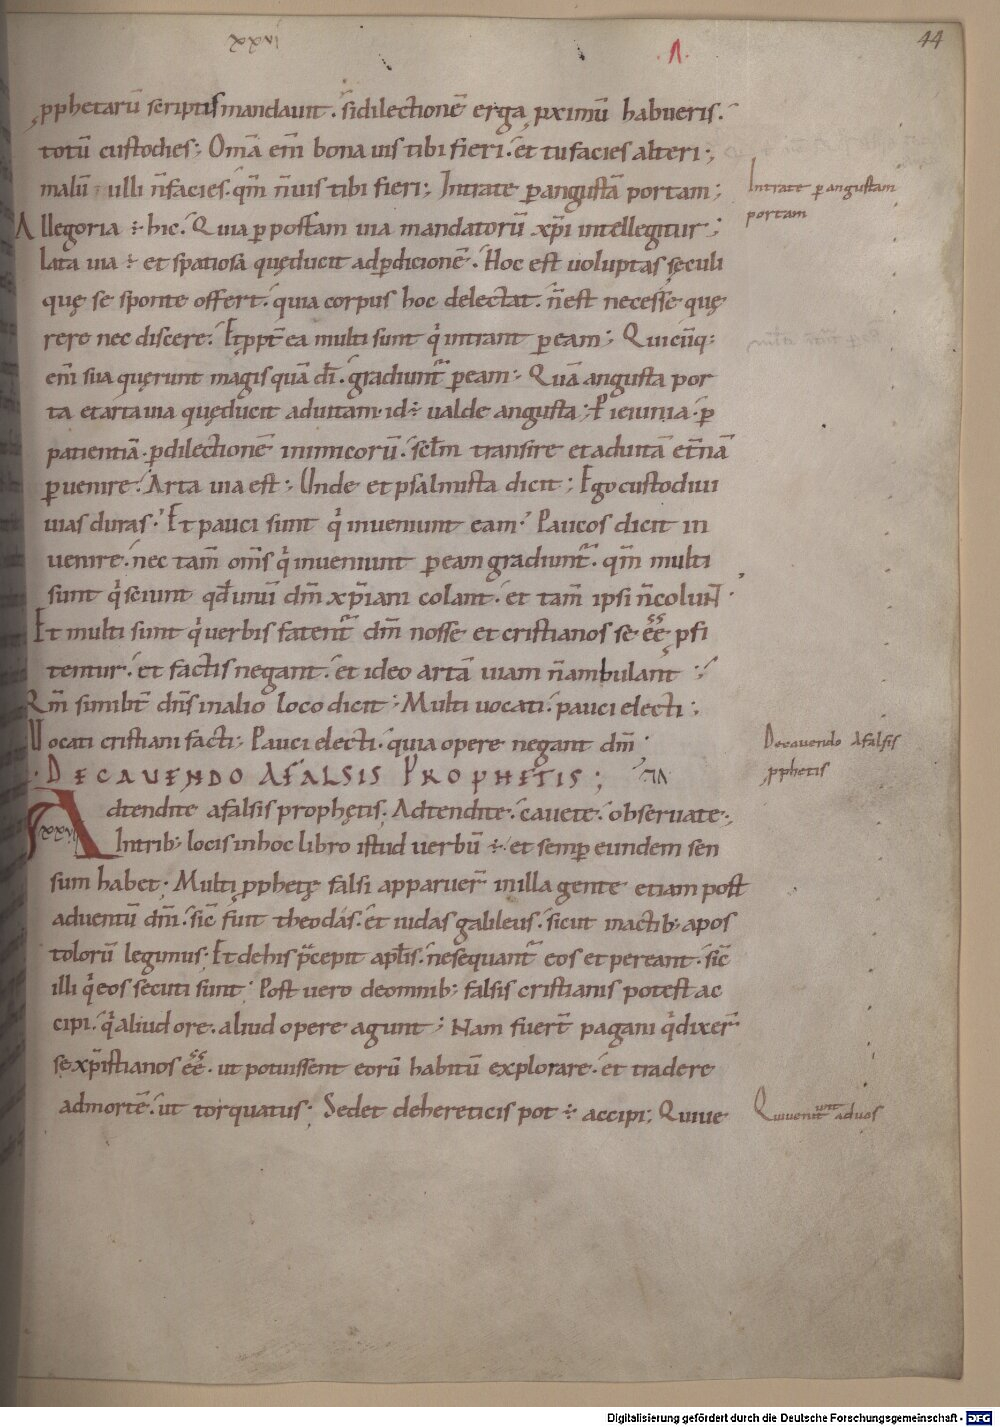 xxvi
.A.
44
ꝓphetarū scriptis mandauit. si dilectionē erga ꝓximū habueris.
totū custodies; Omā em̄ bona uis tibi fieri. et tu facies alteri;
malū ulli n̄ facies. qm̄ n̄ uis tibi fieri; Intrate ꝑ angustā portam;
Intrate ꝑ angustam
portam
Allegoria ÷ hic. Quia ꝑ portam uia mandatorū xp̄i intellegitur;
Lata uia ÷ et spatiosa quę ducit ad ꝑdicionē. Hoc est uoluptas seculi
quę se sponte offert. quia corpus hoc delectat. n̄ est necesse quę
rere nec discere. Et ꝓpt̄ ea multi sunt qͥ intrant ꝑ eam; Quicūq:
em̄ sua quęrunt magis quā dī. gradiunt̄ ꝑ eam; Quā angusta por
ta et arta uia quę ducit ad uitam. id ÷ ualde angusta; P ieiunia. ꝑ
patientiā. ꝑ dilectionē inimicorū. sc̄lm transire et ad uitā et̄nā
ꝑuenire. Arta uia est; Unde et psalmista dicit; Ego custodiui
uias duras. Et pauci sunt qͥ inueniunt eam. Paucos dicit in
uenire. nec tam̄ om̄s qͥ inueniunt ꝑ eam gradiunt̄. qm̄ multi
sunt qͥ sciunt qđ unū dm̄ xp̄iani colant. et tam̄ ipsi n̄ colunt.
Et multi sunt qͥ uerbis fatent̄ dm̄ nosse et cristianos se ēē ꝓfi
tentur. et factis negant. et ideo artā uiam n̄ ambulant;
Qm̄ simibt̄ dn̄s in alio loco dicit; Multi uocati. pauci electi;
Uocati cristiani facti; Pauci electi. quia opere negant dm̄.
Decauendo Afalsis
ꝓphetis
DE CAUENDO A FALSIS PROPHETIS;
xxvi
Adtendite a falsis prophętis. Adtendite. cauete. obseruate;
In trib; locis in hoc libro istud uerbū ÷ et semꝑ eundem sen
sum habet. Multi ꝓphetę falsi apparuer̄ in illa gente etiam post
aduentū dm̄. sic̄ fuit theodás. et iudas galileus. sicut in actib; apos
tolorū legimus. Et de his p̄cepit apl̄is. ne sequant̄ eos et pereant. sic̄
illi qͥ eos secuti sunt. Post uero de omnib; falsis cristianis potest ac
cipi. qͥ aliud ore. aliud opere agunt; Nam fuer̄t pagani qͥ dixer̄
se xp̄istianos ēē. ut potuissent eorū habitū explorare. et tradere
ad mortē. ut torquatus. Sed et de hereticis pot ÷ accipi; Qui ue
Qui uenit ad uos
unt
Digitalisierung gefördert durch die Deutsche Forschungsgemeinschaft - DFG